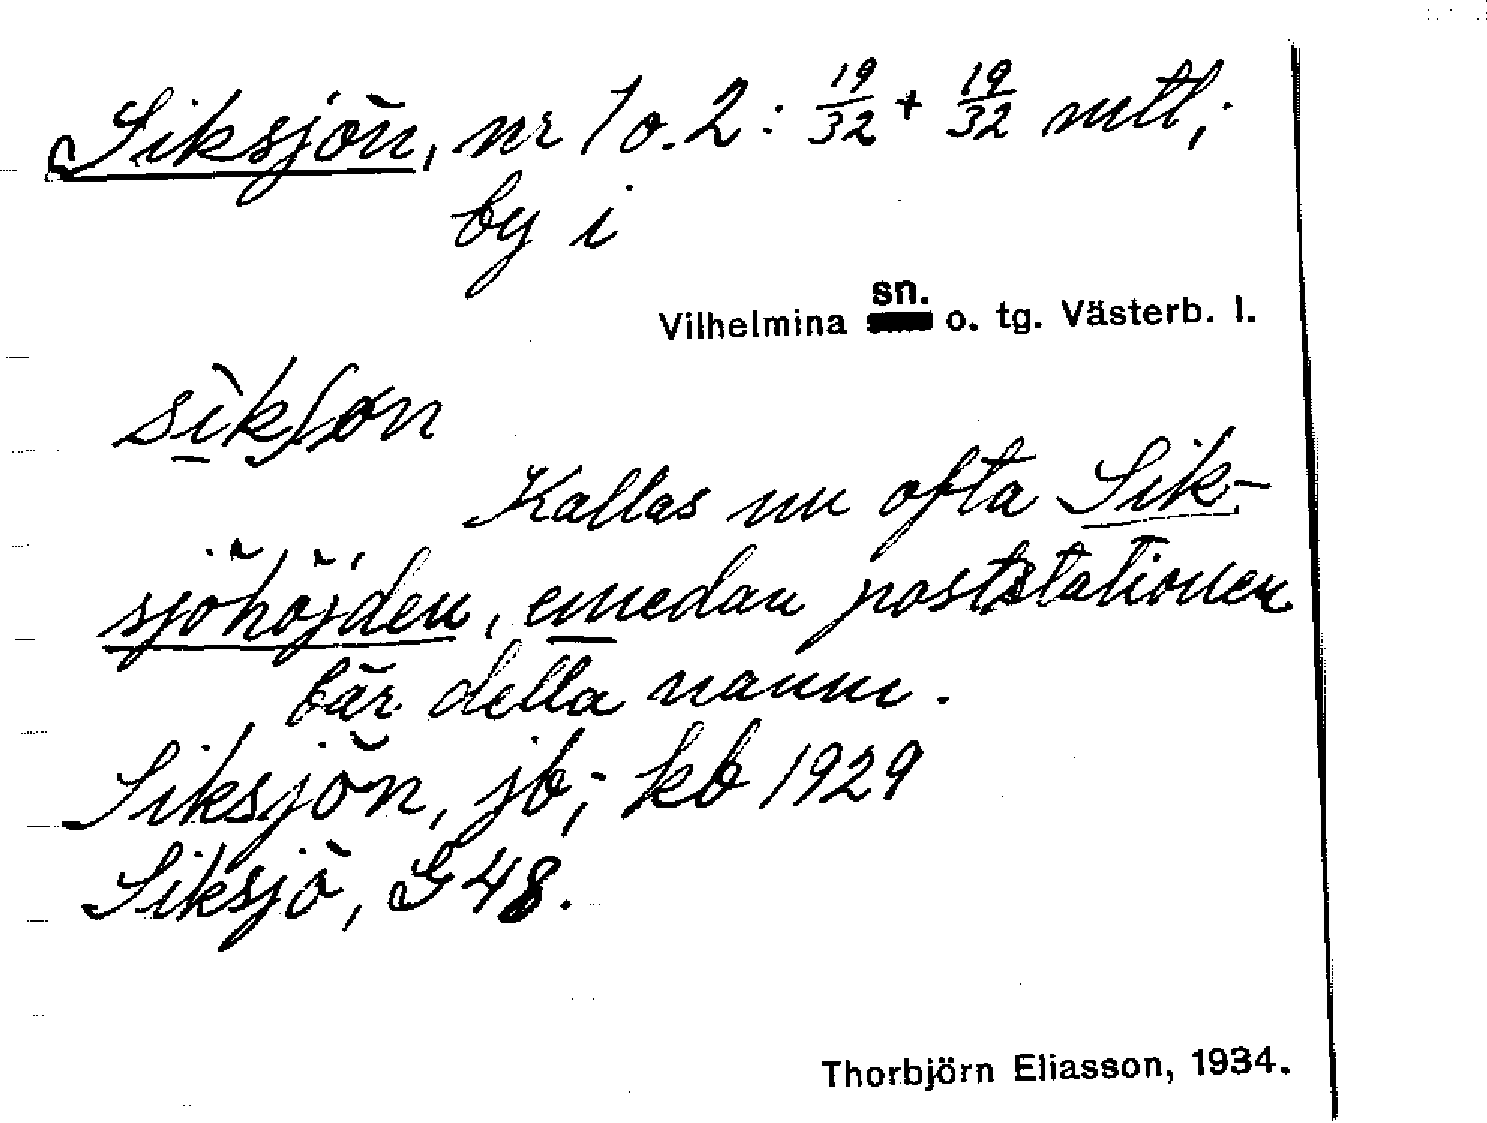 Siksjön, nr 1 o. 2: 19/32 + 19/32 mtl;
by i
Vilhelmina sn. o. tg. Västerb. l.
sìkʃøn
Kallas nu ofta Sik-
sjöhöjden, emedan poststationen
bär detta namn.
Siksjön, jb; kb 1929
Siksjö, G 48.
Thorbjörn Eliasson, 1934.